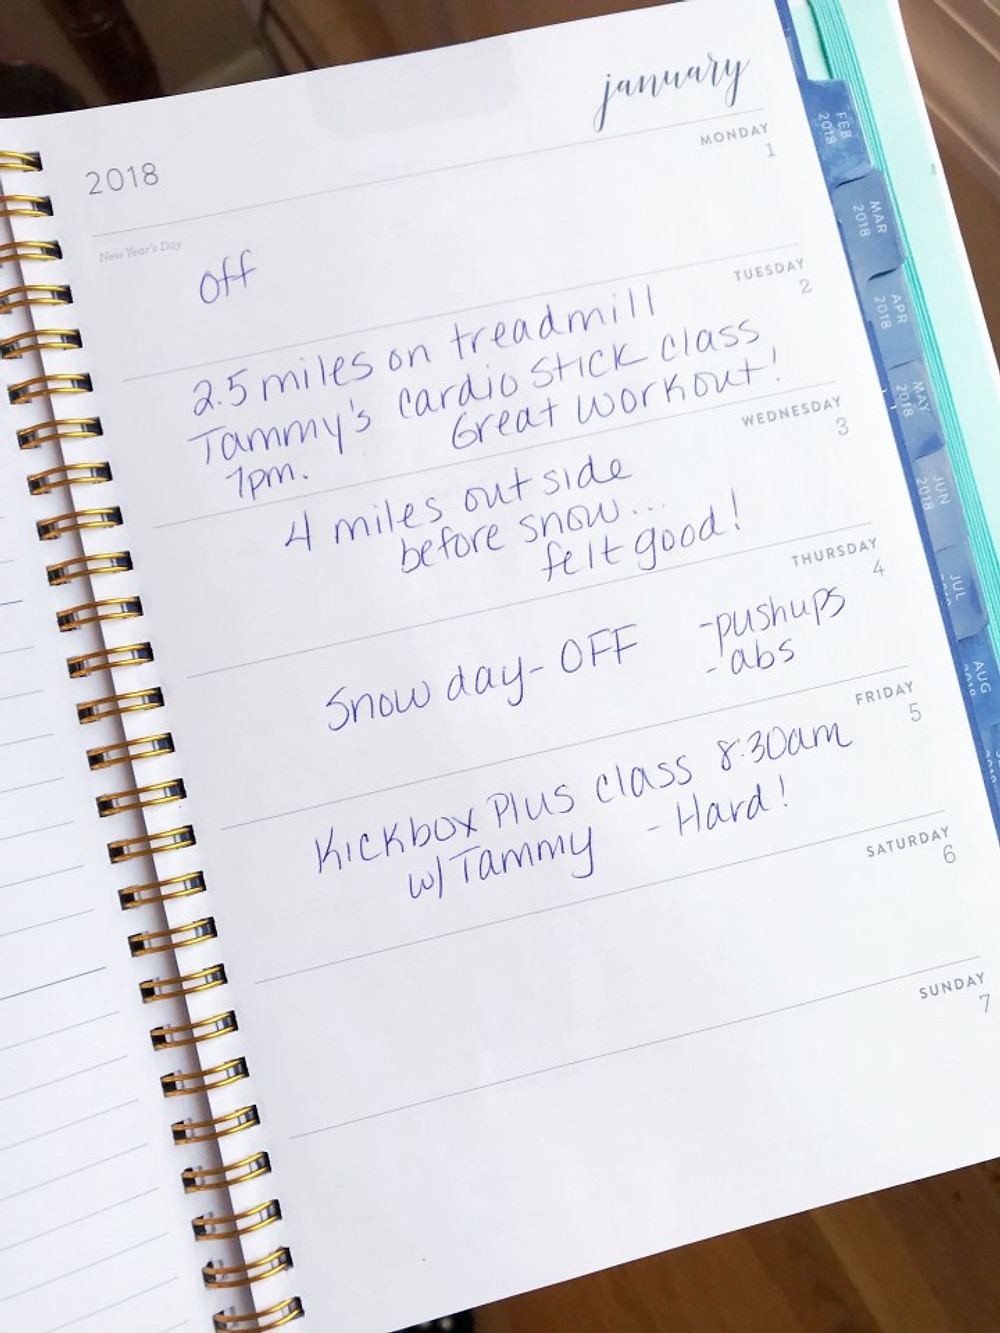 january
2018
MONDAY
1
New Year's Day
Off
TUESDAY
2
2.5 miles on treadmill
Tammy's cardio stick class
7pm. Great workout!
WEDNESDAY
3
4 miles outside
before snow...
felt good!
THURSDAY
4
Snow day - OFF
-pushups
-abs
FRIDAY
5
Kickbox Plus class 8:30am
w/Tammy - Hard!
SATURDAY
6
SUNDAY
7
FEB
2018
MAR
2018
APR
2018
MAY
2018
JUN
2018
JUL
AUG